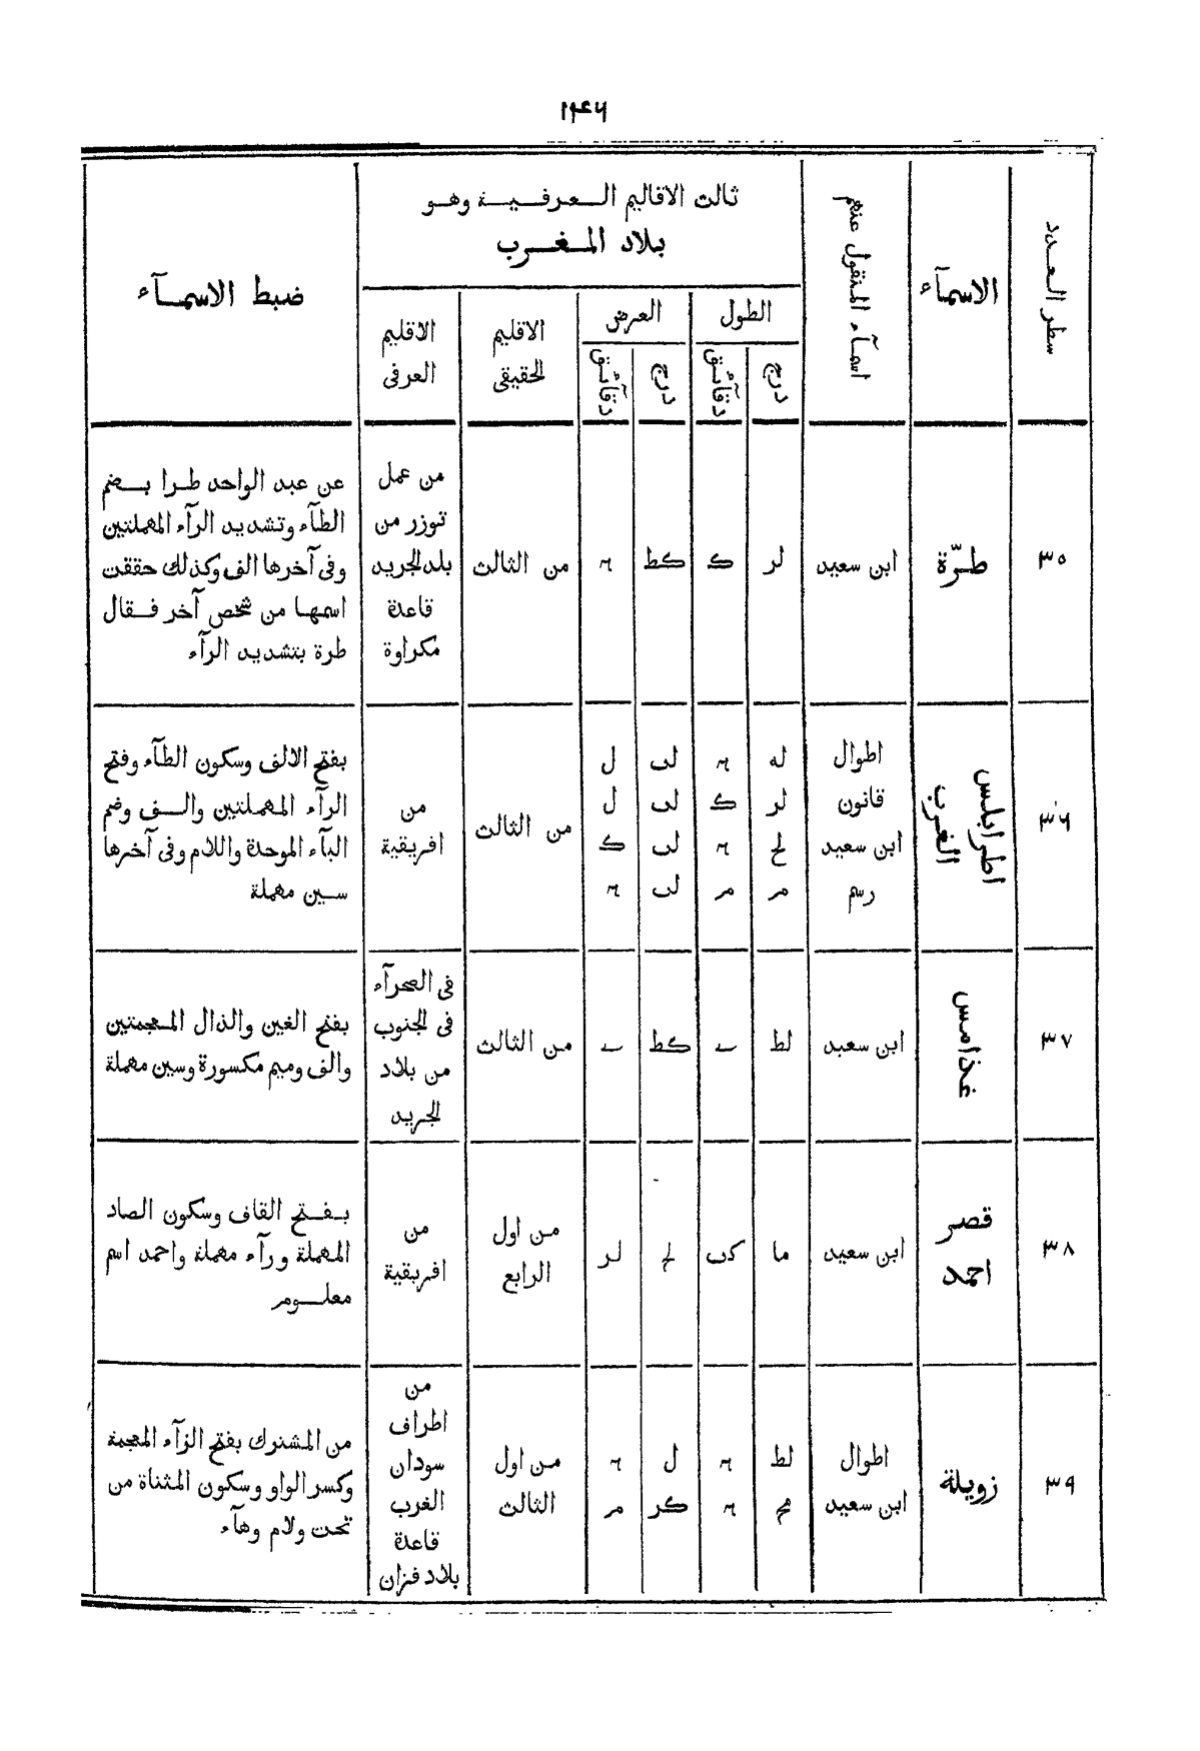 ١٤٦
سطر العدد
الاسمآء
اسمآء المنقول عنهم
ثالث الاقاليم العرفية وهو
بلاد المغرب
الطول
درج
دقآئق
العرض
درج
دقآئق
الاقليم
الحقيقى
الاقليم
العرفى
ضبط الاسمآء
٣٥
طرّة
ابن سعيد
لر
ك
كط
من الثالث
من عمل
توزر من
بلد الجريد
قاعدة
مكراوة
عن عبد الواحد طرا بضم
الطآء وتشديد الرآء المهملتين
وفى آخرها الف وكذلك حققت
اسمها من شخص آخر فقال
طرة بتشديد الرآء
٣٦
اطرابلس
الغرب
اطوال
قانون
ابن سعيد
رسم
له
لر
لح
مر
ك
مر
لب
لب
لب
لب
ل
ل
ك
من الثالث
من
افريقية
بفتح الالف وسكون الطآء وفتح
الرآء المهملتين والف وضم
البآء الموحدة واللام وفى آخرها
سين مهملة
٣٧
غذامس
ابن سعيد
لط
ى
كط
ى
من الثالث
فى الصحرآء
فى الجنوب
من بلاد
الجريد
بفتح الغين والذال المعجمتين
والف وميم مكسورة وسين مهملة
٣٨
قصر
احمد
ابن سعيد
ما
كب
لح
لر
من اول
الرابع
من
افريقية
بفتح القاف وسكون الصاد
المهملة ورآء مهملة واحمد اسم
معلوم
٣٩
زويلة
اطوال
ابن سعيد
لط
مح
ل
كر
مر
من اول
الثالث
من
اطراف
سودان
الغرب
قاعدة
بلاد فزان
من المشترك بفتح الزآء المعجمة
وكسر الواو وسكون المثناة من
تحت ولام وهآء